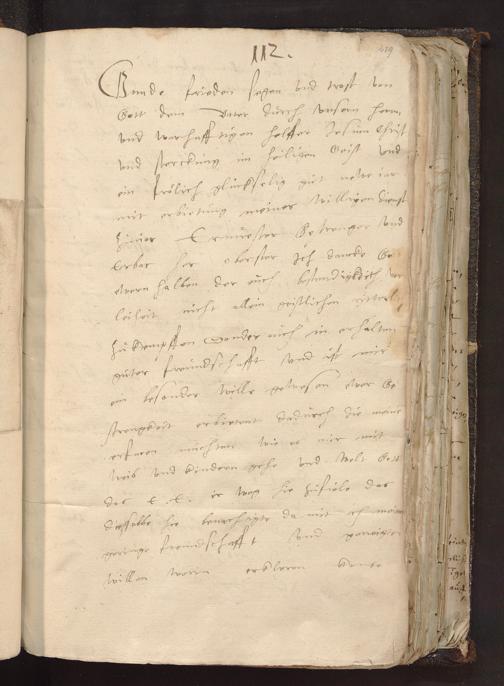 112.
419
Gnade frieden segen vnd trost von
Gott dem Vater durch vnsern herrn
vnd warhafftigen helffer Jesum Christ
vnd sterckung im heiligen Geist vnd
ein frölich glückselig gut newe iar
mit erbietung meiner willigen dienst
zuuor Ernuester Gestrenger vnd
Erbar her oberster Ich dancke Got
ewern halben der euch bestendigklich
nicht allein geistlichen ritterl
zu kempffen sonder euch in erhalten
guter freundschafft vnd ist mir
ein besonder wille gewesen ewer Ge
strengkeit erbieten dadurch die
erfaren möchten wie es mir mit
weib vnd kindern gehe vnd wolt Gott
das E. E. ein weg hie zufiele das
dieselbe hie da mit ich meine
geringe freundschafft vnd geneigten
willen worin erkleren kente